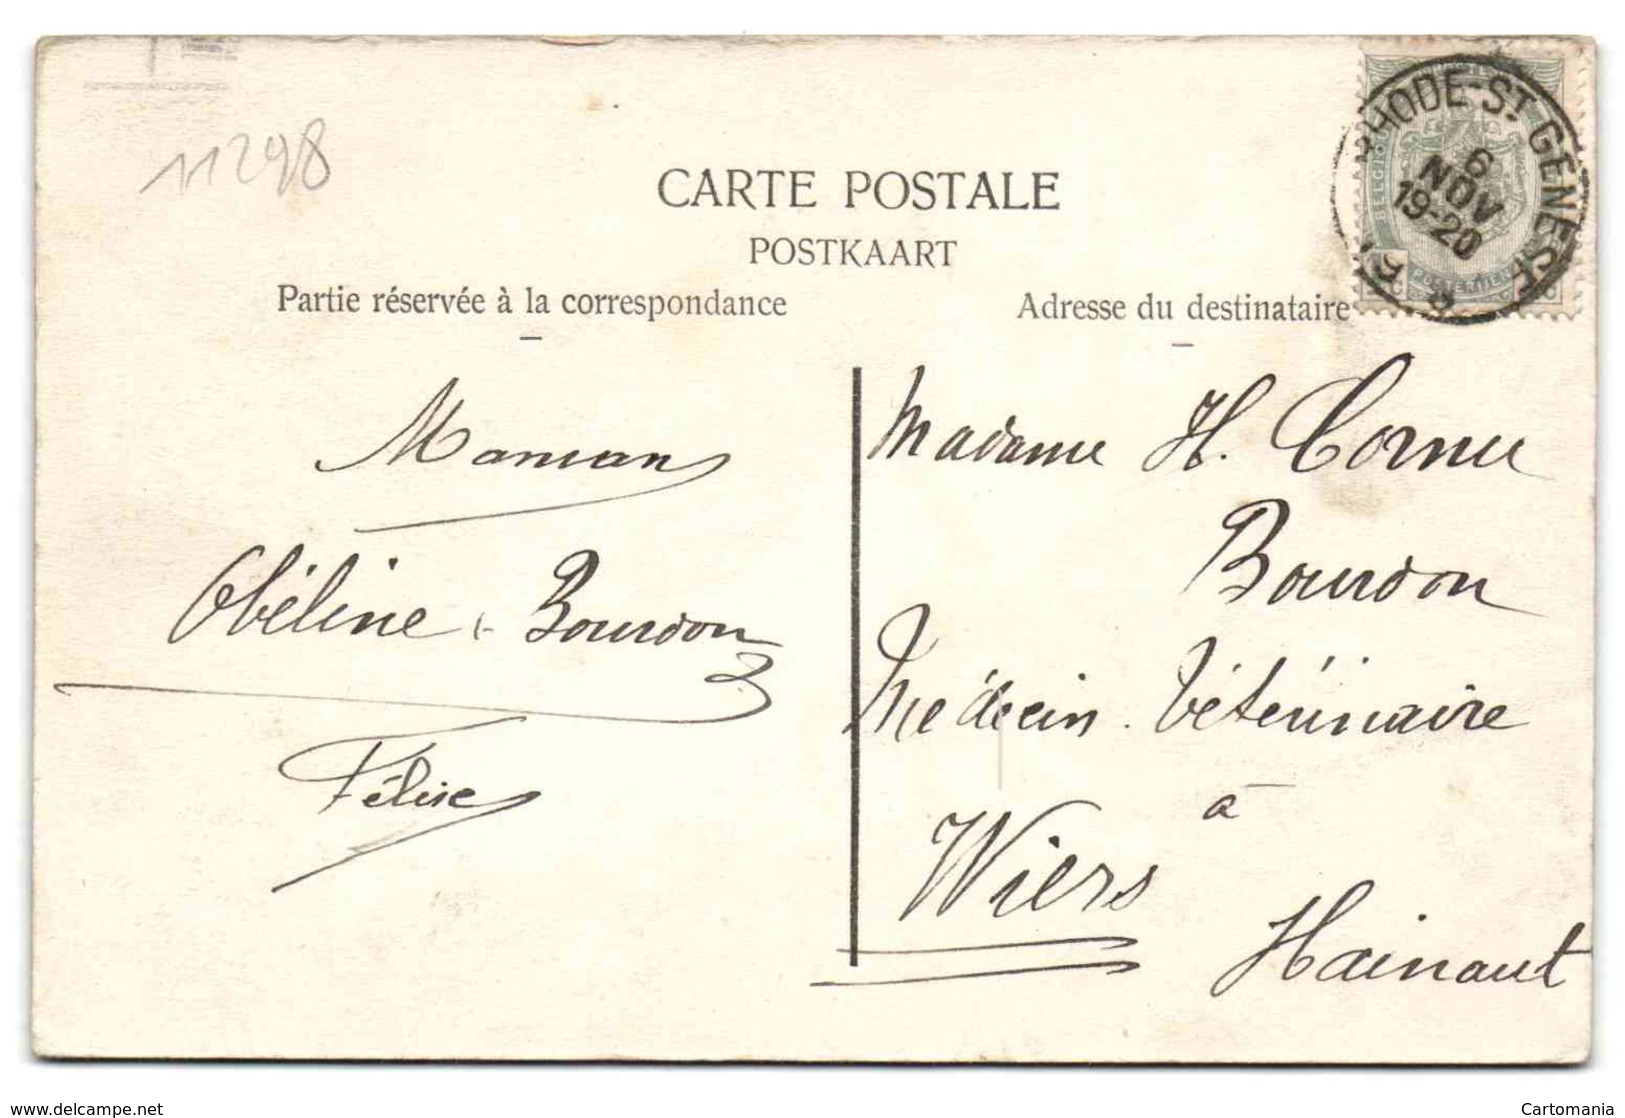 11298
CARTE POSTALE
POSTKAART
Partie réservée à la correspondance
Adresse du destinataire
RHODE-ST GENESE
6
NOV
19-20
BELGIQUE
POSTERIJEN
Maman
Obéline Bourdon
Félise
Madame H. Cornu
Bourdon
Médecin Vétérinaire
à
Wiers
Hainaut
www.delcampe.net
Cartomania